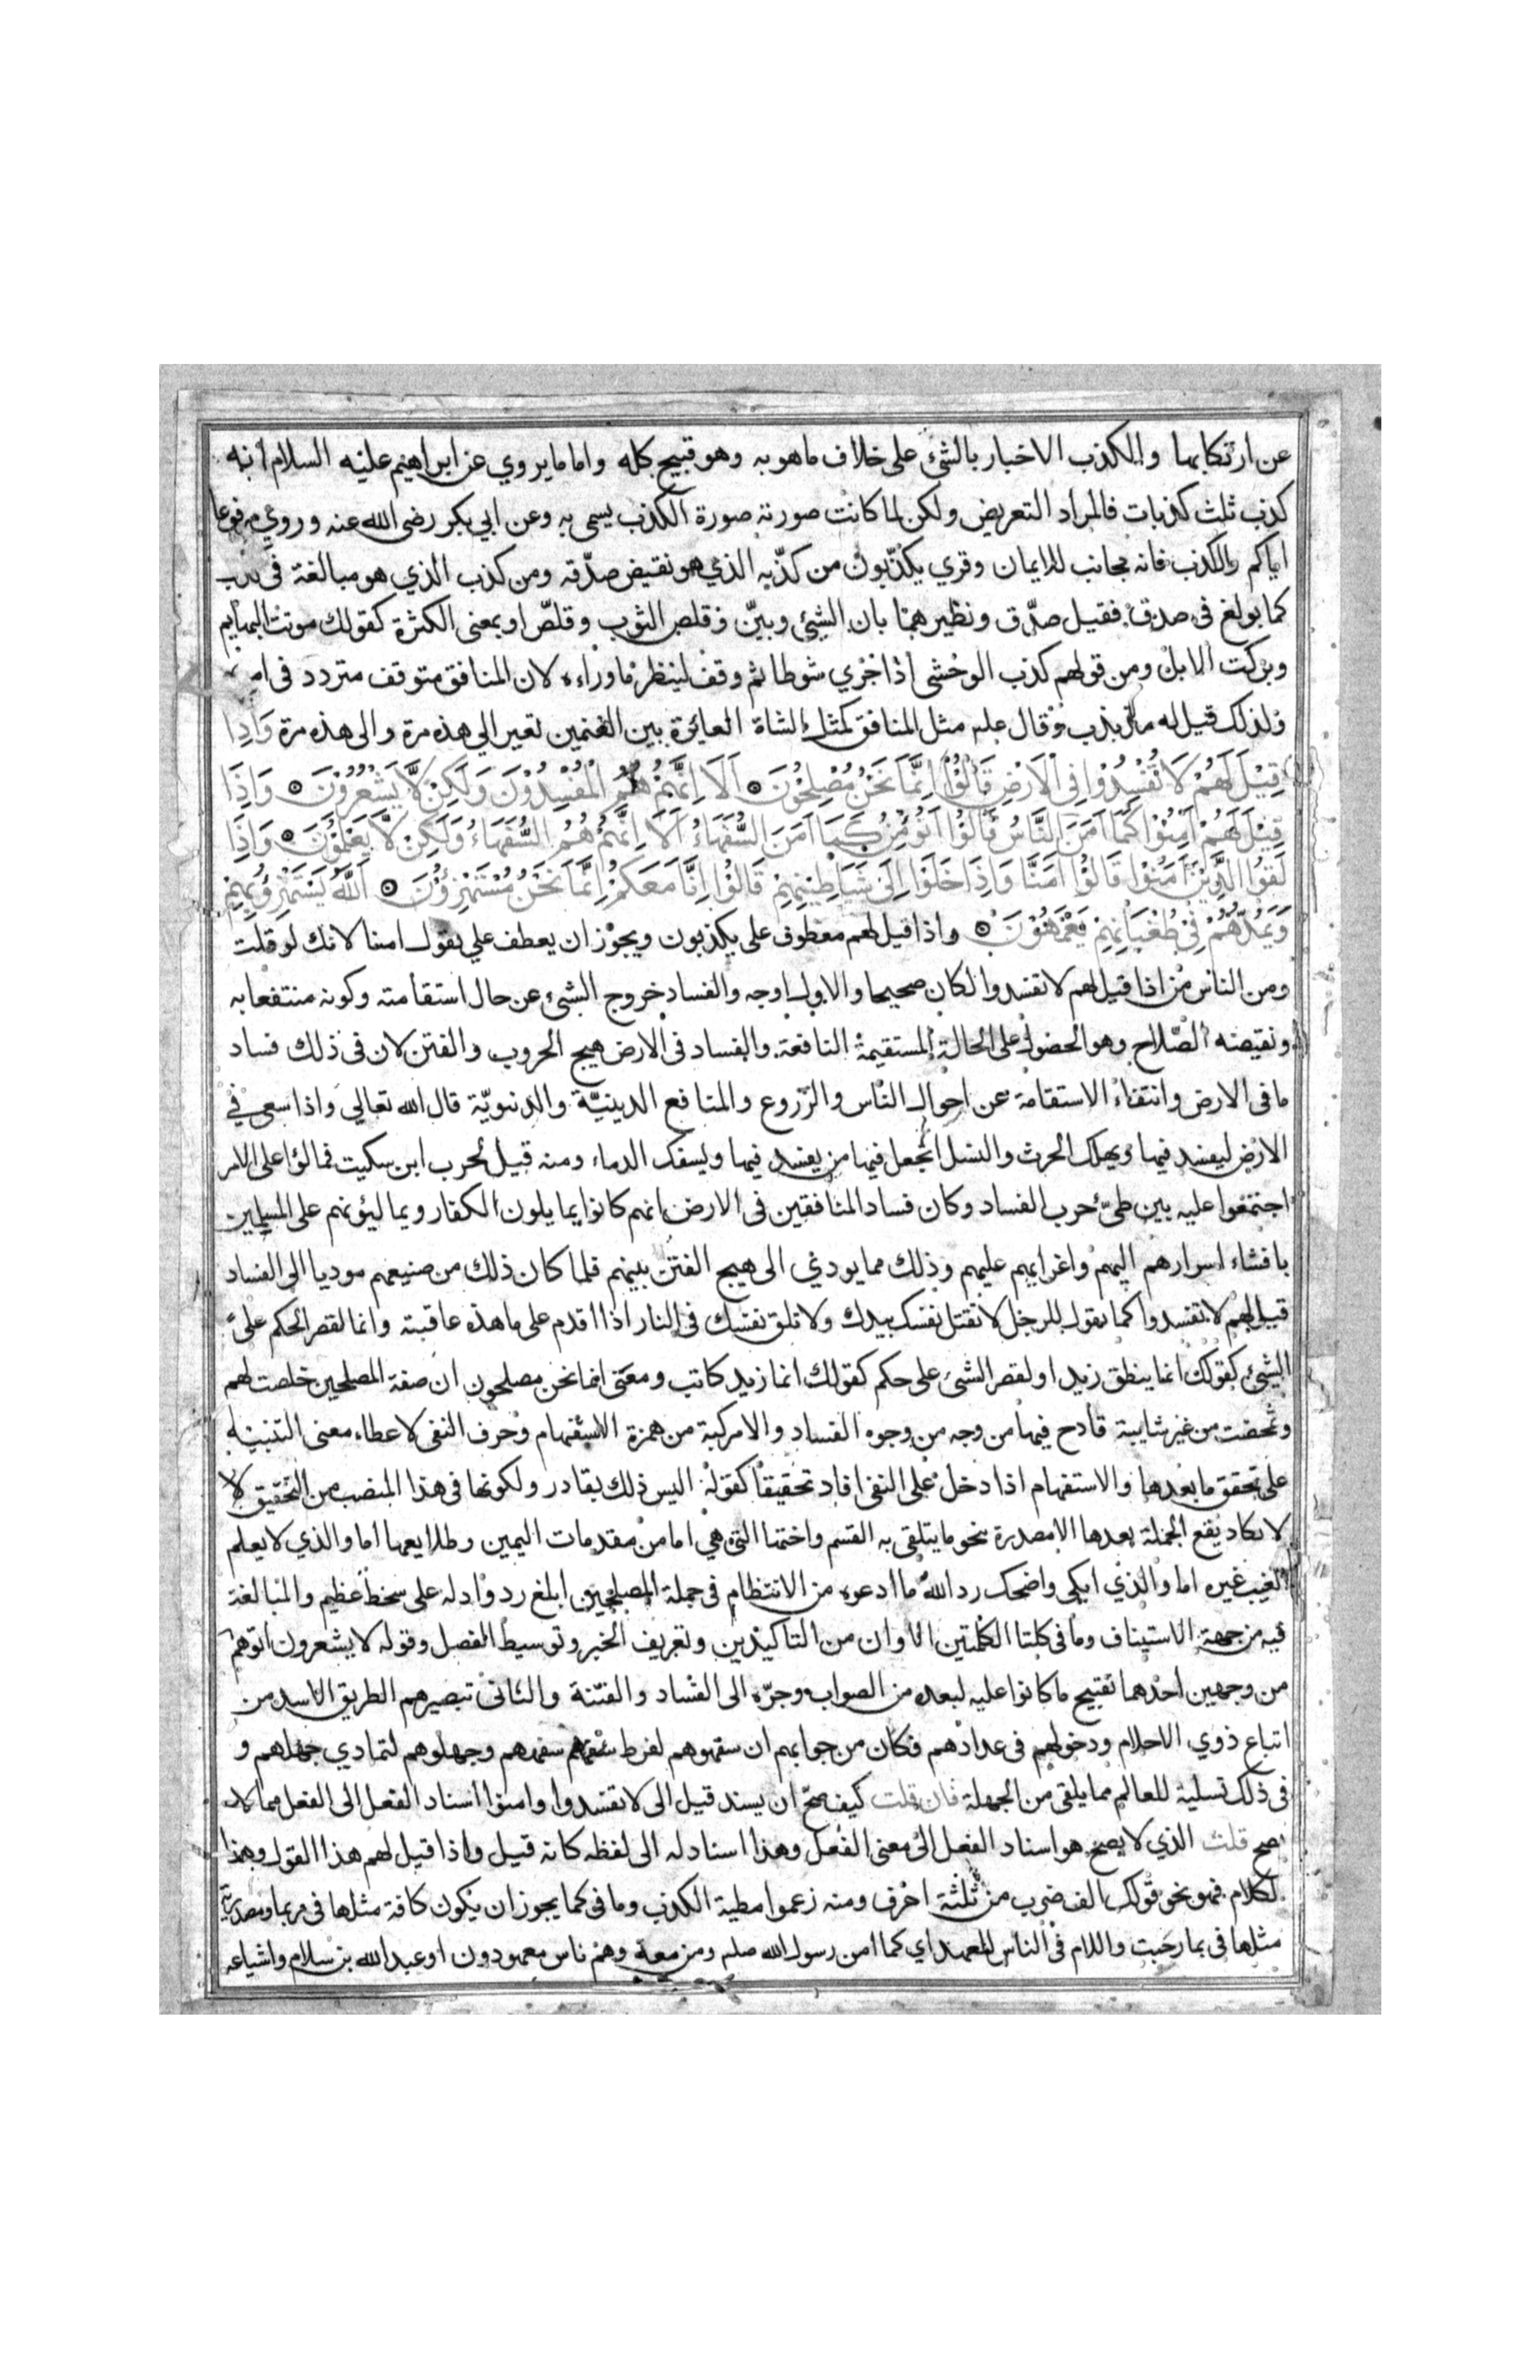 عن ارتكابها والكذب الاخبار بالشئ على خلاف ماهو به وهو قبيح كله واما ما يروي عن ابراهيم عليه السلام انه
كذب ثلث كذبات فالمراد التعريض ولكن لما كانت صورته صورة الكذب يسمى به وعن ابي بكر رضى الله عنه وروي مرفوعا
اياكم والكذب فانه مجانب للايمان وقري يكذّبون من كذّبه الذي هو نقيض صدّقه ومن كذب الذي هو مبالغة في كذب
كما بولغ فى صدق فقيل صدّق ونظيرهما بان الشئ وبيّن وقلص الثوب وقلّص او بمعنى الكثرة كقولك موتت البهايم
وبركت الابل ومن قولهم كذب الوحشى اذا جري شوطا ثم وقف لينظر ماوراءه لان المنافق متوقف متردد فى امره
ولذلك قيل له مذبذب وقال علم مثل المنافق كمثل الشاة العائرة بين الغنمين تعير الي هذه مرة والى هذه مرة وَاِذَا
قِيْلَ لَهُمْ لَا تُفْسِدُوْا فِى الْاَرْضِ قَالُوْا اِنَّمَا نَحْنُ مُصْلِحُوْنَ اَلَا اِنَّهُمْ هُمُ الْمُفْسِدُوْنَ وَلَكِنْ لَّا يَشْعُرُوْنَ وَاِذَا
قِيْلَ لَهُمْ اٰمِنُوْا كَمَا اٰمَنَ النَّاسُ قَالُوْا اَنُؤْمِنُ كَمَا اٰمَنَ السُّفَهَاءُ اَلَا اِنَّهُمْ هُمُ السُّفَهَاءُ وَلَكِنْ لَّا يَعْلَمُوْنَ وَاِذَا
لَقُوا الَّذِيْنَ اٰمَنُوْا قَالُوْا اٰمَنَّا وَاِذَا خَلَوْا اِلَى شَيَاطِيْنِهِمْ قَالُوْا اِنَّا مَعَكُمْ اِنَّمَا نَحْنُ مُسْتَهْزِؤُنَ اَللّٰهُ يَسْتَهْزِؤُ بِهِمْ
وَيَمُدُّهُمْ فِى طُغْيَانِهِمْ يَعْمَهُوْنَ واذا قيل لهم معطوف على يكذبون ويجوز ان يعطف علي يقول امنا لانك لو قلت
ومن الناس من اذا قيل لهم لا تفسدوا لكان صحيحا والاول اوجه والفساد خروج الشئ عن حال استقامته وكونه منتفعا به
ونقيضه الصّلاح وهو الحصول على الحالة المستقيمة النافعة والفساد فى الارض هيج الحروب والفتن لان فى ذلك فساد
ما فى الارض وانتفاء الاستقامة عن احوال الناس والزروع والمنافع الدينيّة والدنيويّة قال الله تعالي واذا سعى فى
الارض ليفسد فيها ويهلك الحرث والنسل اتجعل فيها من يفسد فيها ويسفك الدماء ومنه قيل لحرب ابن سكيت تمالؤا على الامر
اجتمعوا عليه بين طيّ حرب الفساد وكان فساد المنافقين فى الارض انهم كانوا يمايلون الكفار ويماليؤنهم على المسلمين
بافشاء اسرارهم اليهم واغرايهم عليهم وذلك مما يودي الى هيج الفتن بينهم فلما كان ذلك من صنيعهم موديا الى الفساد
قيل لهم لا تفسدوا كما تقول للرجل لا تقتل نفسك بيدك ولا تلق نفسك فى النار اذا اقدم على ما هذه عاقبته وانما لقصر الحكم على
الشئ كقولك انما ينطق زيد او لقصر الشئ على حكم كقولك انما زيد كاتب ومعنى انما نحن مصلحون ان صفة المصلحين خلصت لهم
وتمحضت من غير شايبة قادح فيها من وجه من وجوه الفساد والا مركبة من همزة الاستفهام وحرف النفى لاعطاء معنى التنبيه
على تحقق ما بعدها والاستفهام اذا دخل على النفى افاد تحقيقا كقوله اليس ذلك بقادر ولكونها فى هذا المنصب من التحقيق لا
لا يكاد يقع الجملة بعدها الا مصدرة نحو ما يتلقى به القسم واختها التى هي اما من مقدمات اليمين وطلايعها اما والذي لا يعلم
الغيب غيره اما والذي ابكى واضحك رد الله ما ادعوه من الانتظام فى جملة المصلحين ابلغ رد وادله على سخط عظيم والمبالغة
فيه من جهة الاستيناف وما فى كلتا الكلمتين الا وان من التاكيدين وتعريف الخبر وتوسيط الفصل وقوله لا يشعرون اتوهم
من وجهين احدهما تقبيح ما كانوا عليه لبعده من الصواب وجرّه الى الفساد والفتنة والثانى تبصيرهم الطريق الاسد من
اتباع ذوي الاحلام ودخولهم فى عدادهم فكان من جوابهم ان سفهوهم لفرط سفههم وجهلوهم لتمادي جهلهم و
فى ذلك تسلية للعالم مما يلقى من الجهلة فان قلت كيف صحّ ان يسند قيل الى لا تفسدوا وامنوا اسناد الفعل الى الفعل مما لا
يصح قلت الذي لا يصح هو اسناد الفعل الى معنى الفعل وهذا اسناد له الى لفظه كانه قيل واذا قيل لهم هذا القول وهذا
الكلام فهو نحو قولك الف ضرب من ثلثة احرف ومنه زعموا مطية الكذب وما فى كما يجوز ان يكون كافة مثلها فى ربما ومصدرية
مثلها فى بما رحبت واللام فى الناس للعهد اي كما امن رسول الله صلم ومن معه وهم ناس معهودون او عبد الله بن سلام واشياعه